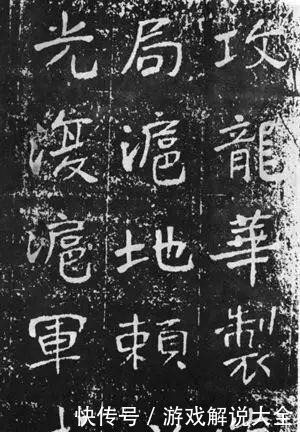 攻龍華製
局滬地賴
光復滬軍
快传号/游戏解说大全